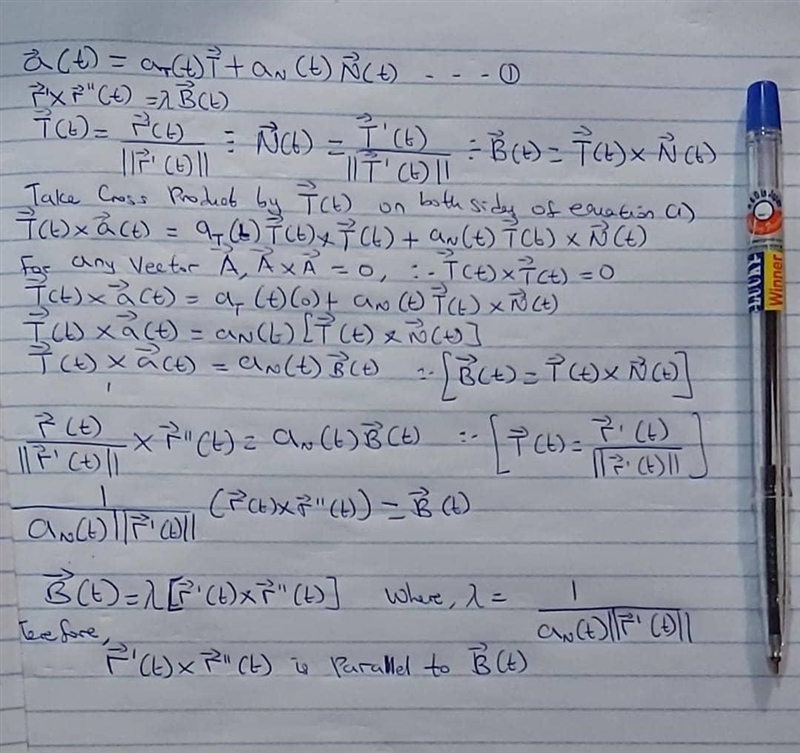 a⃗(t) = a_T(t)T⃗ + a_N(t)N⃗(t) - - - - ①
r⃗'×r⃗''(t) = λB⃗(t)
T⃗(t) = r⃗(t)/||r⃗'(t)|| ⁚⁚ N⃗(t) = T⃗'(t)/||T⃗'(t)|| ⁚⁚ B⃗(t) = T⃗(t) × N⃗(t)
Take Cross Product by T⃗(t) on both sides of equation (1)
T⃗(t) × a⃗(t) = a_T(t)T⃗(t) × T⃗(t) + a_N(t)T⃗(t) × N⃗(t)
For any Vector A⃗, A⃗×A⃗ = 0, ∴ T⃗(t)×T⃗(t) = 0
T⃗(t) × a⃗(t) = a_T(t)(0) + a_N(t)T⃗(t) × N⃗(t)
T⃗(t) × a⃗(t) = a_N(t)[T⃗(t) × N⃗(t)]
T⃗(t) × a⃗(t) = a_N(t)B⃗(t) ∵ [B⃗(t) = T⃗(t) × N⃗(t)]
r⃗(t)/||r⃗'(t)|| × r⃗''(t) = a_N(t)B⃗(t) ∵ [T⃗(t) = r⃗'(t)/||r⃗'(t)||]
1/(a_N(t)||r⃗'(t)||) (r⃗(t)×r⃗''(t)) = B⃗(t)
B⃗(t) = λ[r⃗'(t)×r⃗''(t)] Where, λ = 1/(a_N(t)||r⃗'(t)||)
Terefore,
r⃗'(t)×r⃗''(t) is Parallel to B⃗(t)
Winner